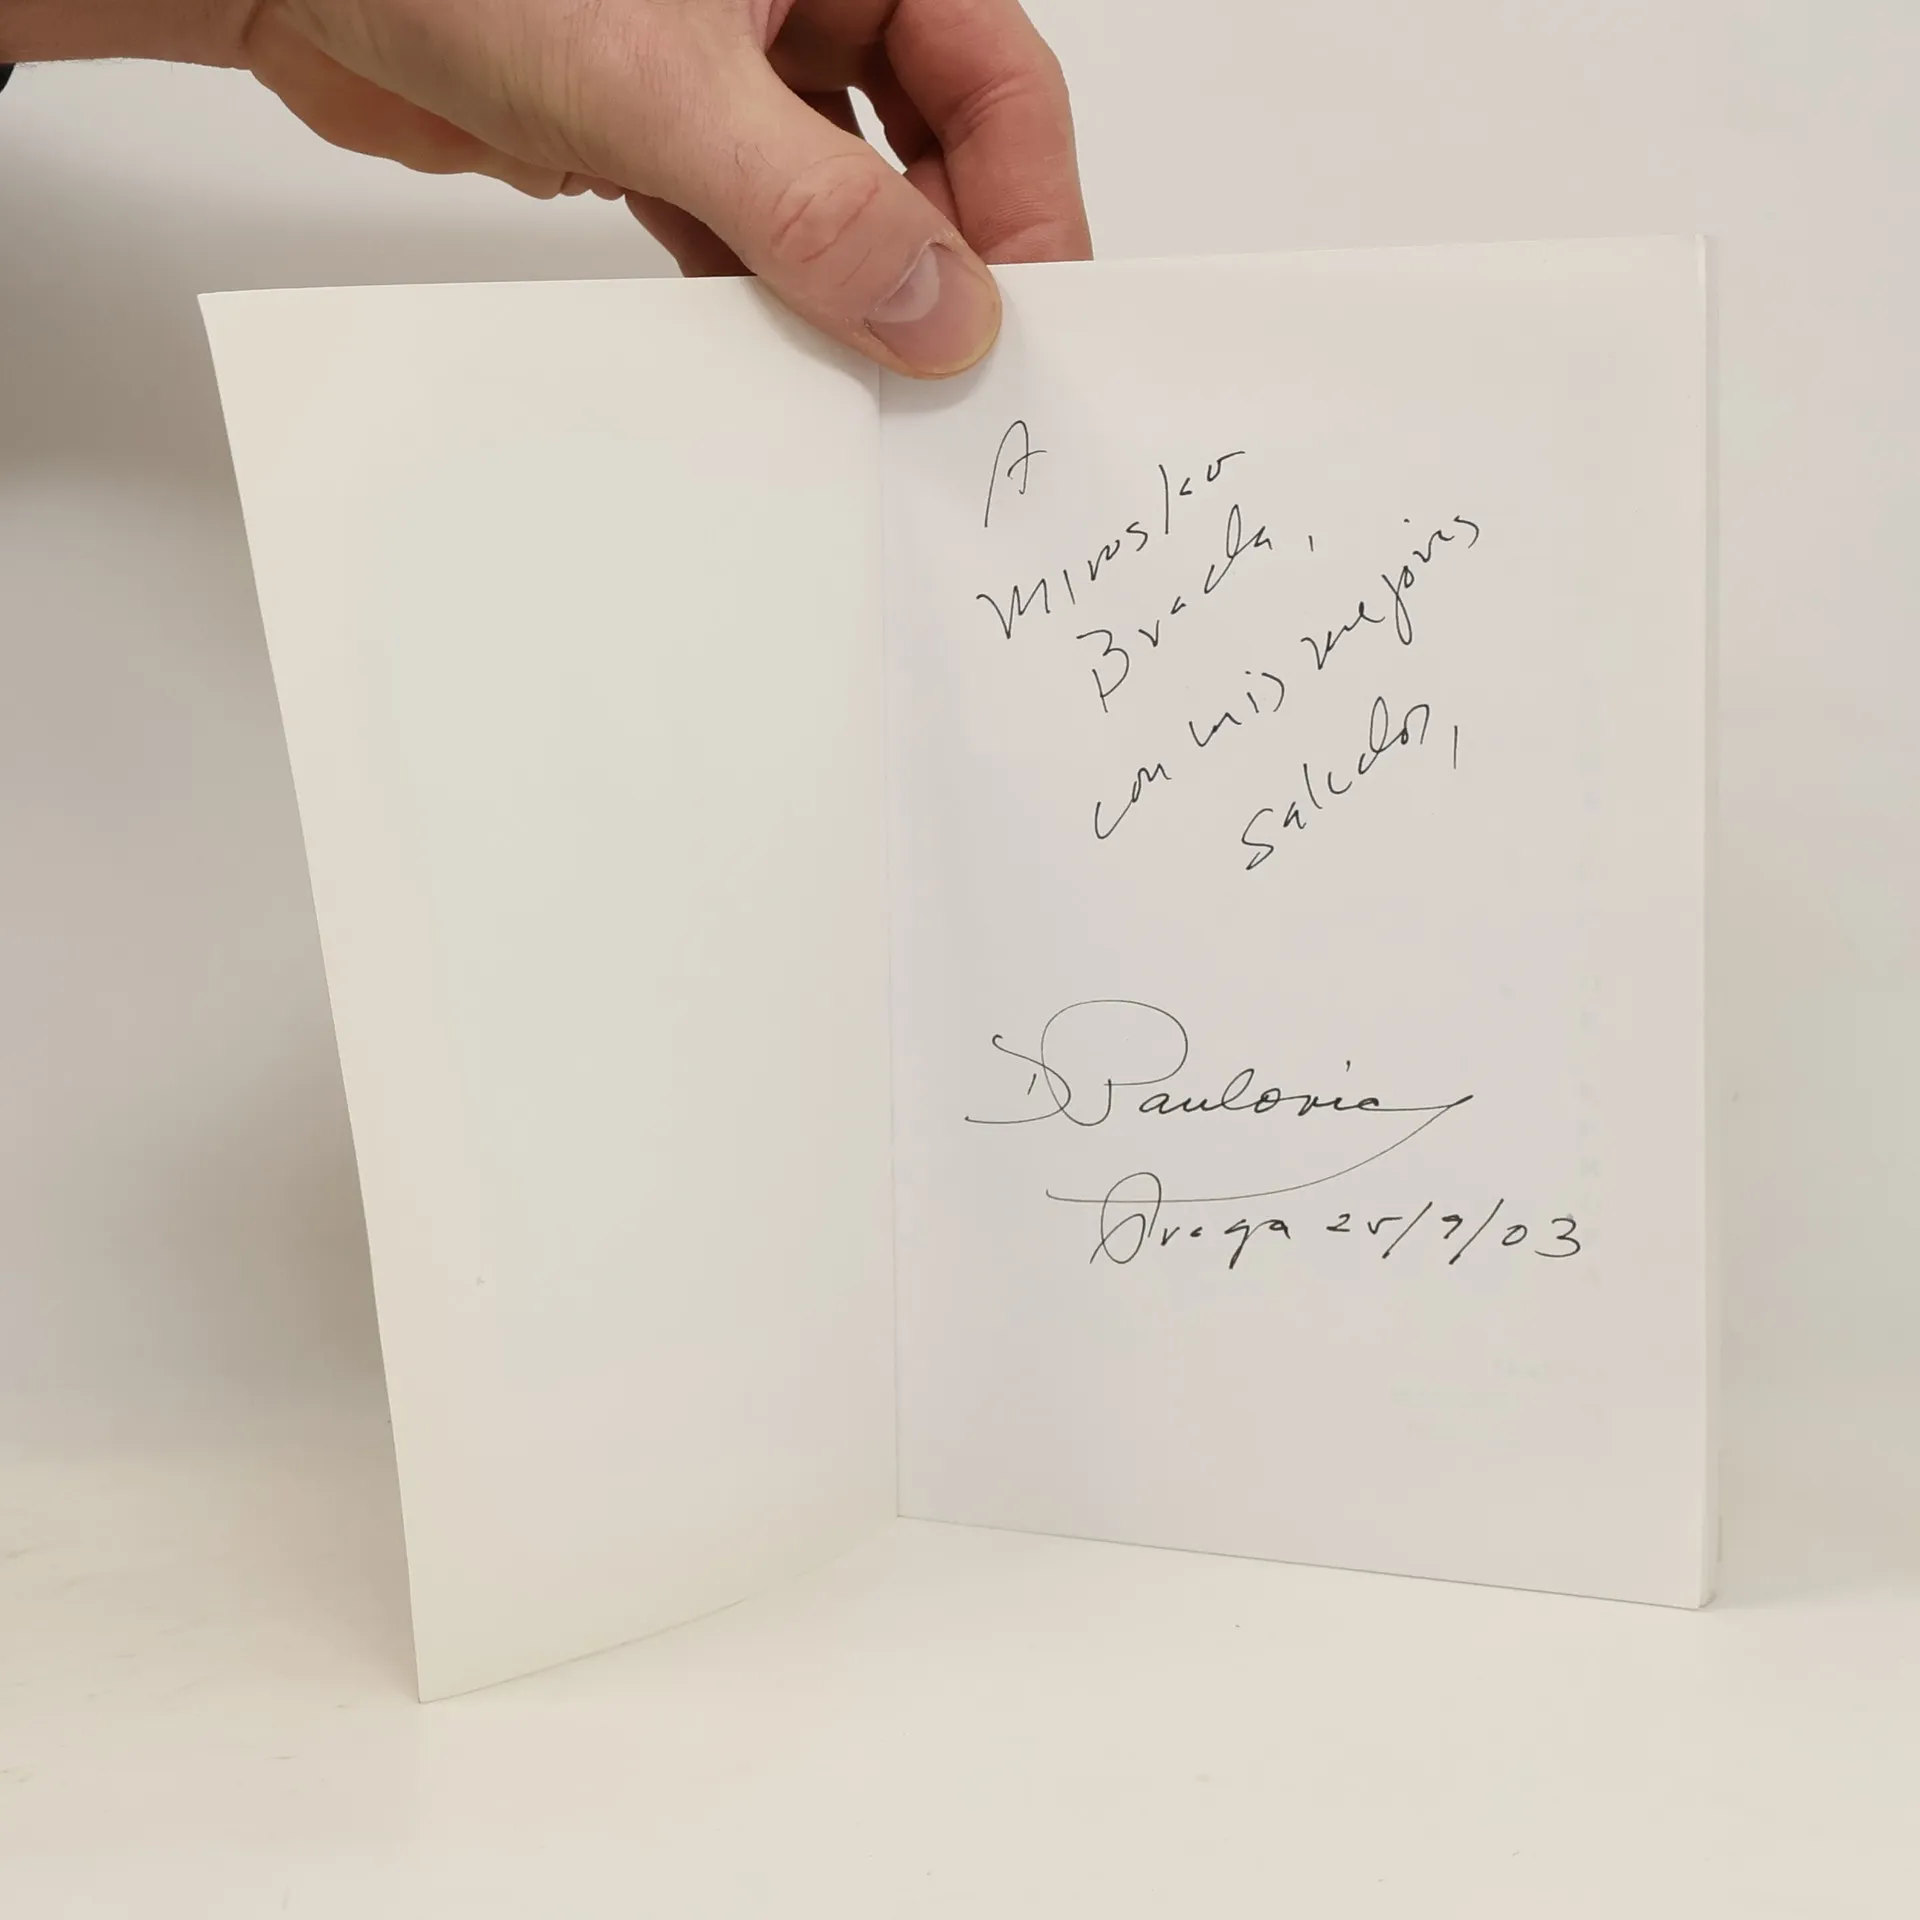 A
Miroslav
Brada,
con mis mejores
saludos,
D Paulovic
Praga 25/9/03